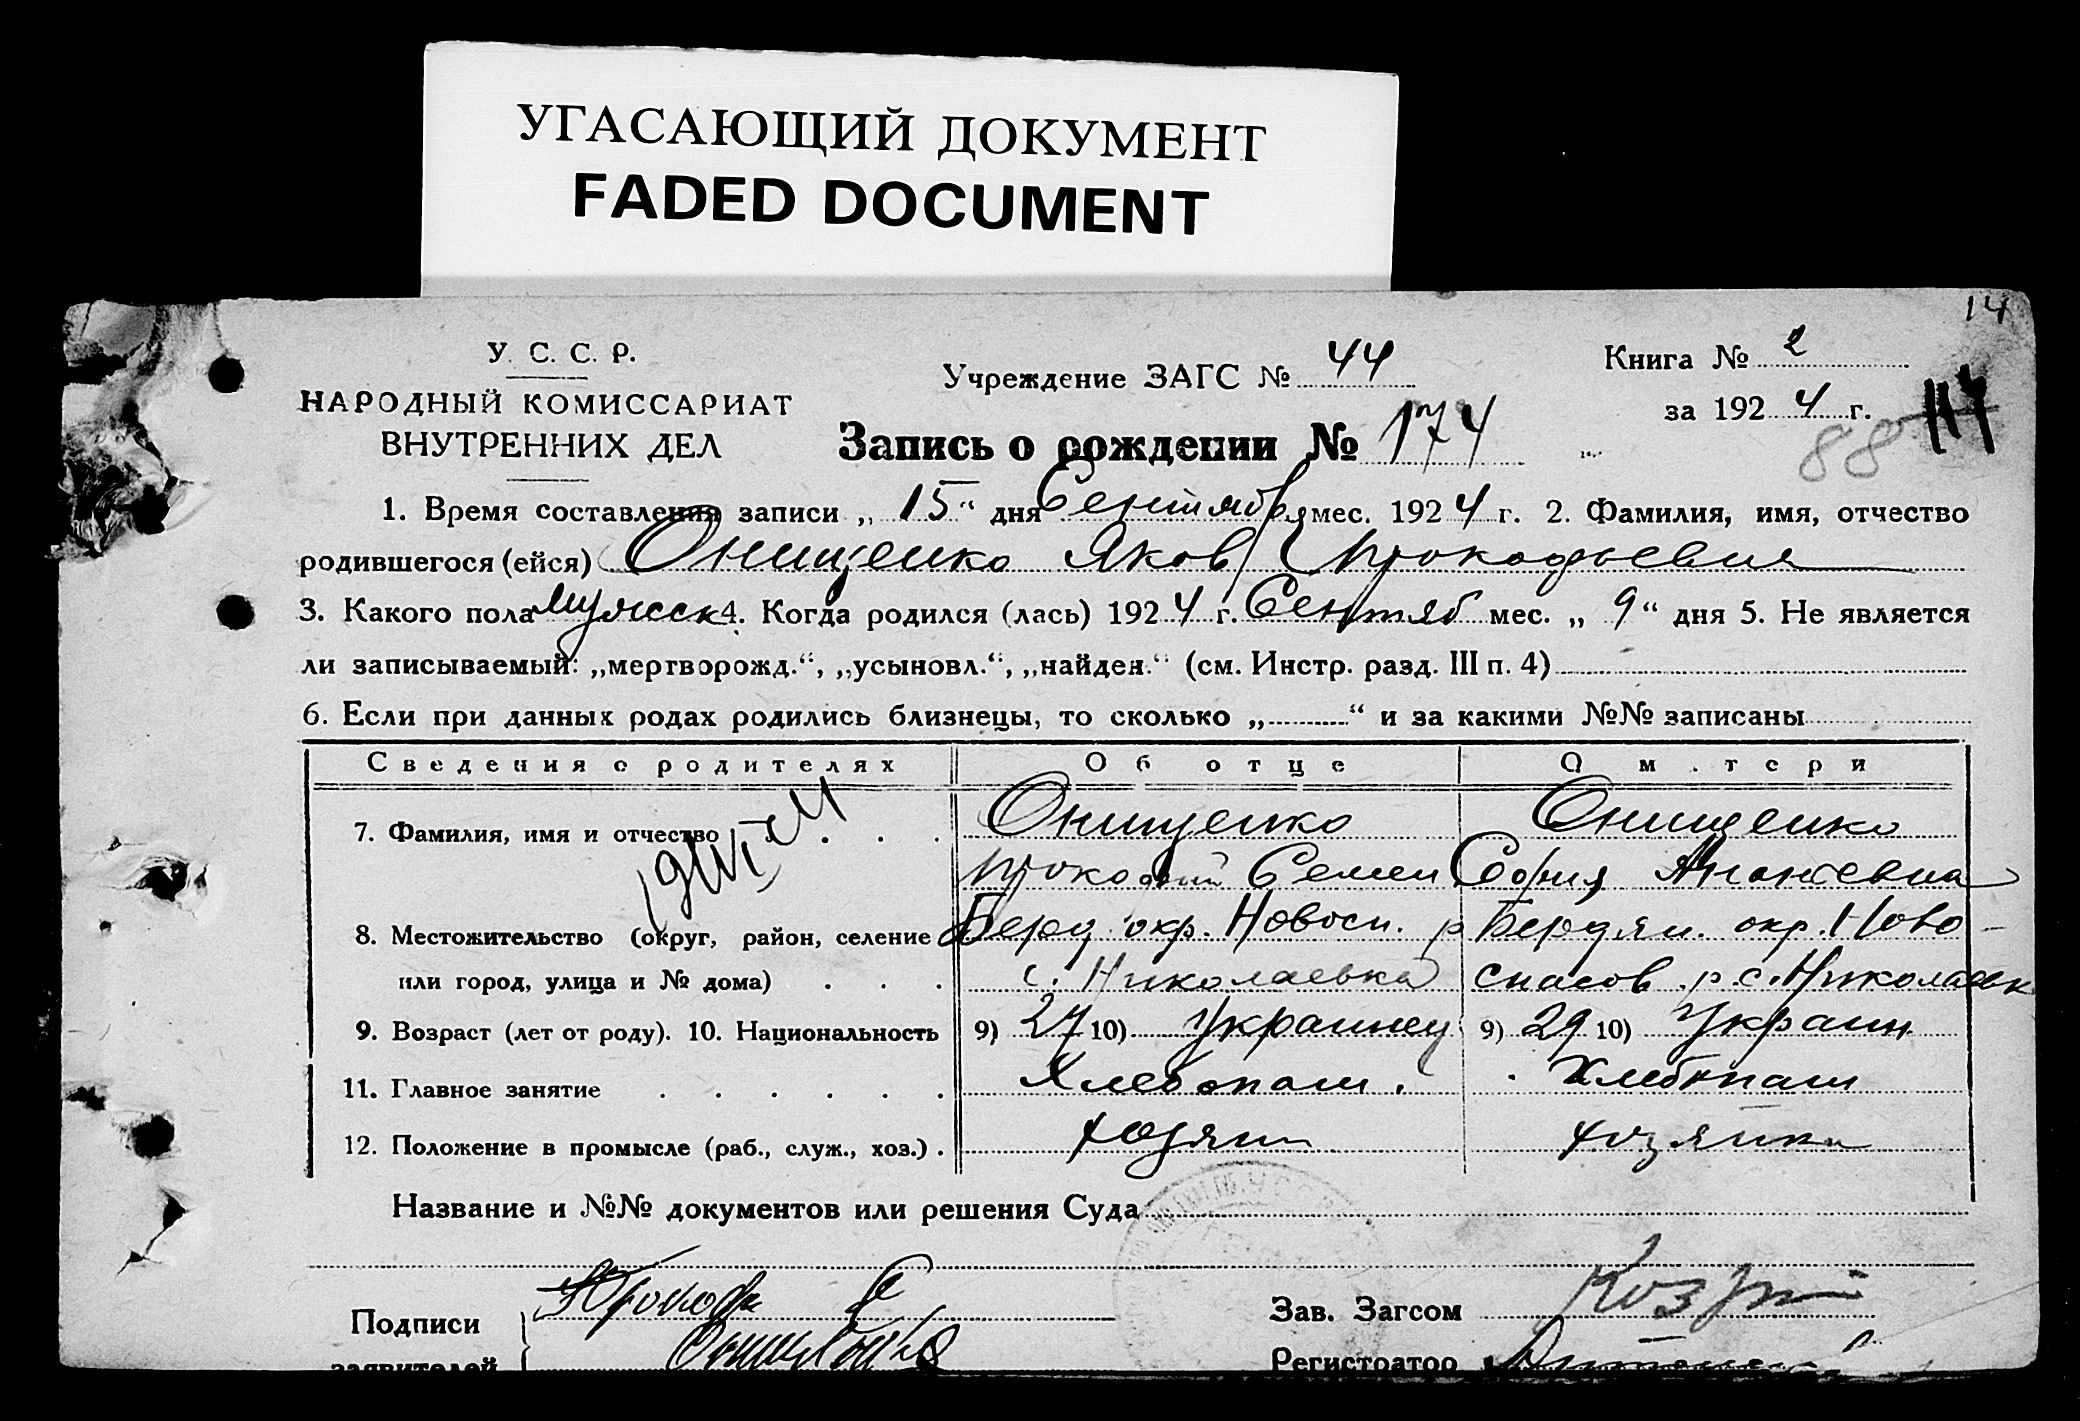 УГАСАЮЩИЙ ДОКУМЕНТ
FADED DOCUMENT
14
У. С. С. Р.
НАРОДНЫЙ КОМИССАРИАТ
ВНУТРЕННИХ ДЕЛ
Учреждение ЗАГС № 44
Книга № 2
за 1924 г.
88
Запись о рождении № 174
1. Время составления записи „15“ дня Сентября мес. 1924 г. 2. Фамилия, имя, отчество
родившегося (ейся) Онищенко Яков Прокофьевич
3. Какого пола мужск 4. Когда родился (лась) 1924 г. Сентяб мес. „9“ дня 5. Не является
ли записываемый: „мертворожд.“, „усыновл.“, „найден.“ (см. Инстр. разд. III п. 4)
6. Если при данных родах родились близнецы, то сколько „ “ и за какими №№ записаны
Сведения о родителях Об отце О матери
7. Фамилия, имя и отчество Онищенко Онищенко
Прокофий Семен София Ананьевна
8. Местожительство (округ, район, селение Берд. окр. Новосп. р Бердян. окр. Ново-
или город, улица и № дома) с. Николаевка спасов. р. с. Николаевк
9. Возраст (лет от роду). 10. Национальность 9) 27 10) Украинец 9) 29 10) Украин
11. Главное занятие Хлебопаш. Хлебопаш
12. Положение в промысле (раб., служ., хоз.) хозяин хозяйка
Название и №№ документов или решения Суда
Подписи Прокоф С
заявителей Онищенко
Зав. Загсом
Регистратор